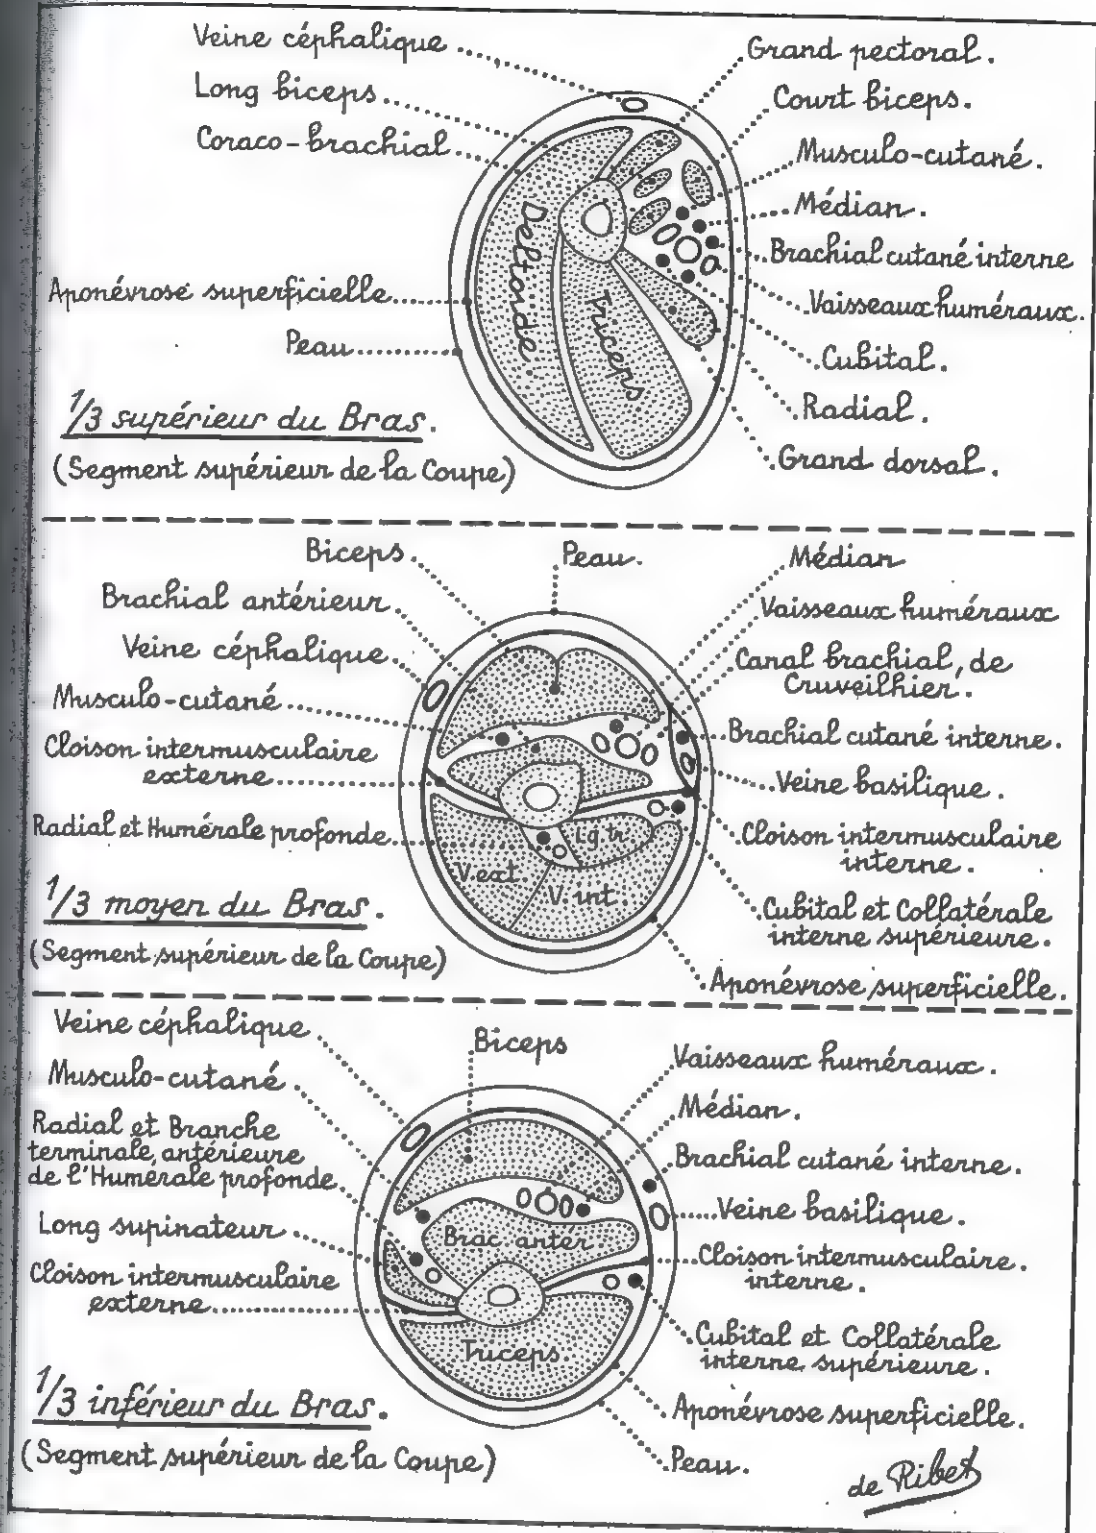 Veine céphalique
Long biceps
Coraco-brachial
Aponévrose superficielle
Peau
Grand pectoral.
Court biceps.
Musculo-cutané.
Médian.
Brachial cutané interne
Vaisseaux huméraux.
Cubital.
Radial.
Grand dorsal.
Deltoïde.
Triceps
1/3 supérieur du Bras.
(Segment supérieur de la Coupe)
Biceps.
Peau.
Brachial antérieur
Veine céphalique
Musculo-cutané
Cloison intermusculaire
externe
Radial et Humérale profonde
Médian
Vaisseaux huméraux
Canal brachial, de
Cruveilhier.
Brachial cutané interne.
Veine basilique.
Cloison intermusculaire
interne.
Cubital et Collatérale
interne supérieure.
Aponévrose superficielle.
Lg. tr.
V. ext.
V. int.
1/3 moyen du Bras.
(Segment supérieur de la Coupe)
Veine céphalique
Musculo-cutané
Radial et Branche
terminale antérieure
de l'Humérale profonde
Long supinateur
Cloison intermusculaire
externe
Biceps
Vaisseaux huméraux.
Médian.
Brachial cutané interne.
Veine basilique.
Cloison intermusculaire.
interne.
Cubital et Collatérale
interne supérieure.
Aponévrose superficielle.
Peau.
Brac. anter
Triceps.
1/3 inférieur du Bras.
(Segment supérieur de la Coupe)
de Ribet